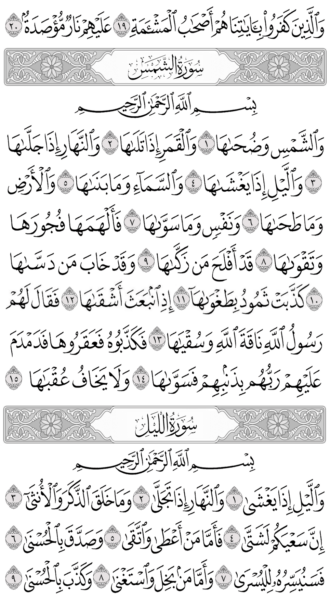 وَالَّذِينَ كَفَرُوا بِـَٔايَـٰتِنَا هُمْ أَصْحَـٰبُ الْمَشْـَٔمَةِ ١٩ عَلَيْهِمْ نَارٌ مُّؤْصَدَةٌ ٢٠
سُورَةُ الشَّمْسِ
بِسْمِ اللَّهِ الرَّحْمَـٰنِ الرَّحِيمِ
وَالشَّمْسِ وَضُحَىٰهَا ١ وَالْقَمَرِ إِذَا تَلَىٰهَا ٢ وَالنَّهَارِ إِذَا جَلَّىٰهَا
٣ وَالَّيْلِ إِذَا يَغْشَىٰهَا ٤ وَالسَّمَآءِ وَمَا بَنَىٰهَا ٥ وَالْأَرْضِ
وَمَا طَحَىٰهَا ٦ وَنَفْسٍ وَمَا سَوَّىٰهَا ٧ فَأَلْهَمَهَا فُجُورَهَا
وَتَقْوَىٰهَا ٨ قَدْ أَفْلَحَ مَن زَكَّىٰهَا ٩ وَقَدْ خَابَ مَن دَسَّىٰهَا
١٠ كَذَّبَتْ ثَمُودُ بِطَغْوَىٰهَآ ١١ إِذِ انۢبَعَثَ أَشْقَىٰهَا ١٢ فَقَالَ لَهُمْ
رَسُولُ اللَّهِ نَاقَةَ اللَّهِ وَسُقْيَـٰهَا ١٣ فَكَذَّبُوهُ فَعَقَرُوهَا فَدَمْدَمَ
عَلَيْهِمْ رَبُّهُم بِذَنۢبِهِمْ فَسَوَّىٰهَا ١٤ وَلَا يَخَافُ عُقْبَـٰهَا ١٥
سُورَةُ اللَّيْلِ
بِسْمِ اللَّهِ الرَّحْمَـٰنِ الرَّحِيمِ
وَالَّيْلِ إِذَا يَغْشَىٰ ١ وَالنَّهَارِ إِذَا تَجَلَّىٰ ٢ وَمَا خَلَقَ الذَّكَرَ وَالْأُنثَىٰٓ ٣
إِنَّ سَعْيَكُمْ لَشَتَّىٰ ٤ فَأَمَّا مَنْ أَعْطَىٰ وَاتَّقَىٰ ٥ وَصَدَّقَ بِالْحُسْنَىٰ ٦
فَسَنُيَسِّرُهُۥ لِلْيُسْرَىٰ ٧ وَأَمَّا مَنۢ بَخِلَ وَاسْتَغْنَىٰ ٨ وَكَذَّبَ بِالْحُسْنَىٰ ٩